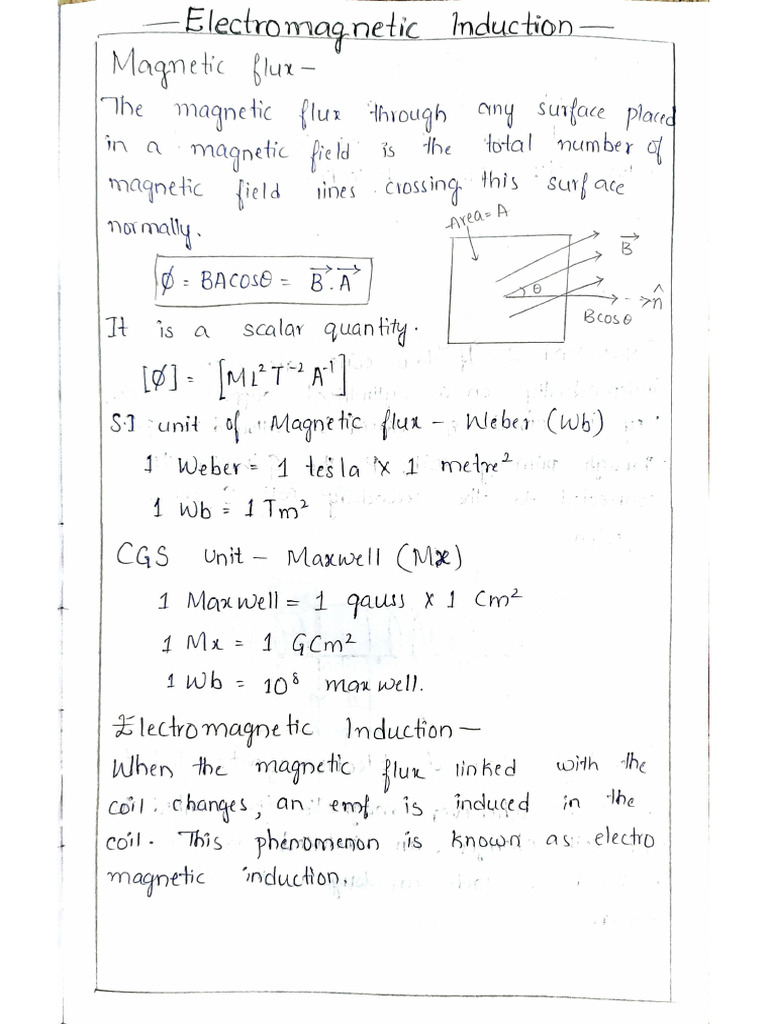 — Electromagnetic Induction —
Magnetic flux -
The magnetic flux through any surface placed
in a magnetic field is the total number of
magnetic field lines crossing this surface
normally.
Area = A
B⃗
θ
n̂
Bcosθ
Ø = BACOSθ = B⃗.A⃗
It is a scalar quantity.
[Ø] = [ML²T⁻²A⁻¹]
S.I unit of Magnetic flux - Weber (Wb)
1 Weber = 1 tesla x 1 metre²
1 Wb = 1 Tm²
CGS Unit - Maxwell (Mx)
1 Maxwell = 1 gauss x 1 Cm²
1 Mx = 1 GCm²
1 Wb = 10⁸ maxwell.
Electromagnetic Induction —
When the magnetic flux linked with the
coil changes, an emf is induced in the
coil. This phenomenon is known as electro
magnetic induction.